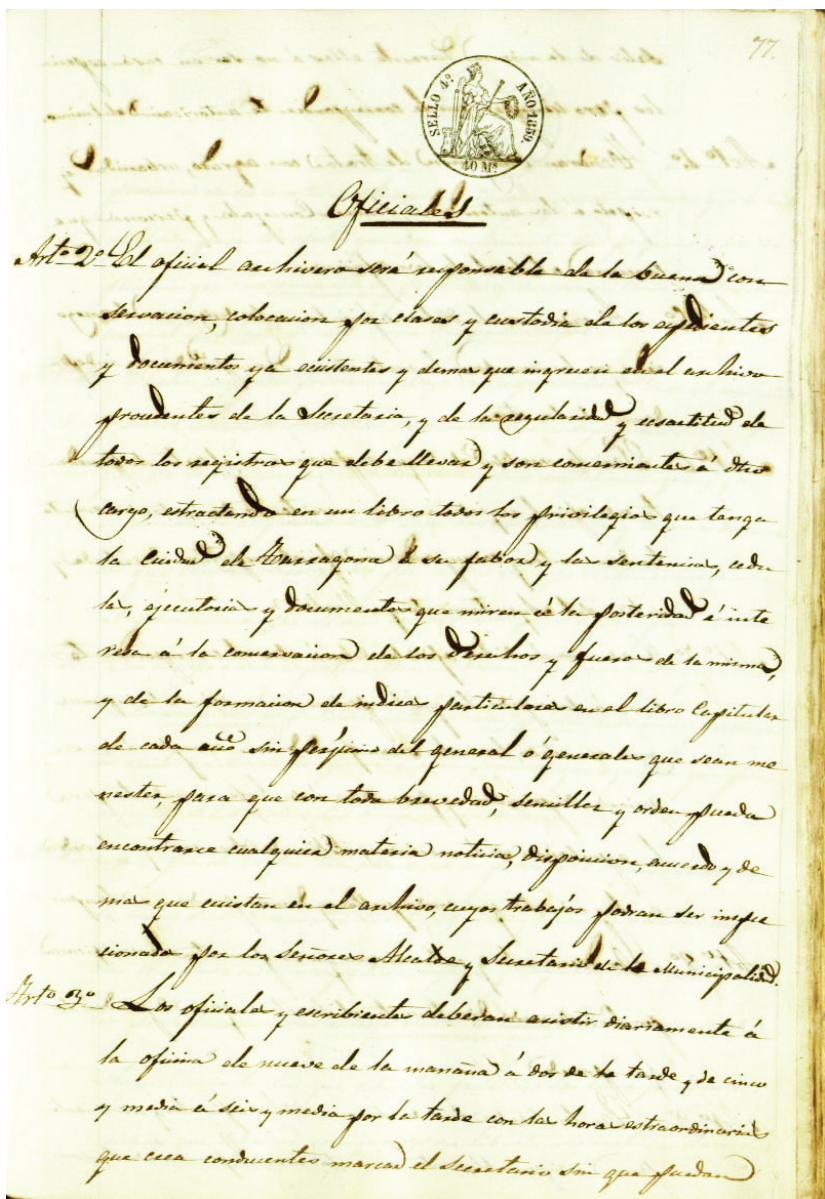 77.
SELLO 4º AÑO 1859.
40 Mˢ
Oficiales
Artº 2º El oficial archivero será responsable de la buena con
servacion, colocacion por clases y custodia de los espedientes
y documentos ya existentes y demas que ingresen en el archivo
procedentes de la Secretaria, y de la regularidad y esactitud de
todos los registros que debe llevar y son concernientes á dho
cargo, estractando en un libro todos los privilegios que tenga
la Ciudad de Tarragona á su fabor y las sentencias, cedu
las, ejecutorias y documentos que miren á la posteridad é inte
resa á la conservacion de los derechos y fueros de la misma,
y de la formacion de indices particulares en el libro Capitular
de cada año sin perjuicio del general ó generales que sean me
nester, para que con toda brevedad, sencillez y orden pueda
encontrarse cualquiera materia noticia, disposicion, acuerdo y de
mas que existan en el archivo, cuyos trabajos podran ser inspec
cionados por los Señores Alcalde y Secretario de la Municipalidad.
Artº 3º Los oficiales y escribientes deberan asistir diariamente á
la oficina de nueve de la mañana á dos de la tarde y de cinco
y media á seis y media por la tarde con las horas estraordinarias
que crea conducentes marcar el Secretario sin que puedan